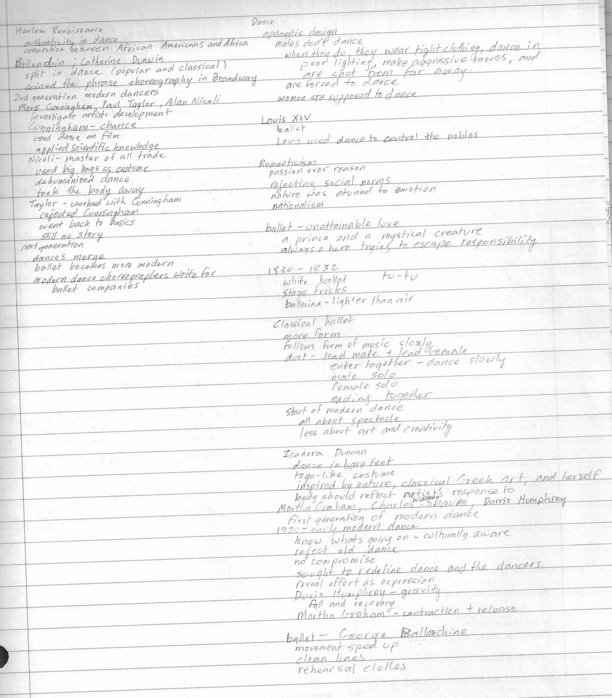 Dance
Harlem Renaissance
authenticity in dance
connection between African Americans and Africa
Ballanchin ; Catherine Donwin
split in dance (popular and classical)
coined the phrase choreography in Broadway
2nd generation modern dancers
Merc Cunningham, Paul Taylor, Alan Nicoli
investigate artists development
Cunningham - chance
used dance on film
applied scientific knowledge
Nicoli - master of all trade
used big bags as costume
dehumanized dance
took the body away
Taylor - worked with Cunningham
rejected Cunningham
went back to basics
still no story
next generation
dances merge
ballet becomes more modern
modern dance choreographers write for
ballet companies
apologetic design
males don't dance
when they do, they wear tight clothing, dance in
poor lighting, make aggressive moves, and
are shot from far away
are forced to dance
women are supposed to dance
Louis XIV
ballet
Louis used dance to control the nobles
Romanticism
passion over reason
rejecting social norms
nature was atuned to emotion
nationalism
ballet - unattainable love
a prince and a mystical creature
always a hero trying to escape responsibility
1830 - 1832
white ballet tu-tu
stage tricks
ballerina - lighter than air
Classical ballet
more form
follows form of music closely
duet - lead male + lead female
enter together - dance slowly
male solo
female solo
ending together
start of modern dance
all about spectacle
less about art and creativity
Isadora Duncan
dance in bare feet
toga-like costume
inspired by nature, classical Greek art, and herself
body should reflect artist's response to
Martha Graham, Charles Dorris Humphrey
first generation of modern dance
early modern dance
know whats going on - culturally aware
reject old dance
no compromise
sought to redefine dance and the dancers
reveal effort as expression
Doris Humphrey - gravity
fall and recovery
Martha Graham - contraction + release
ballet - George Ballanchine
movement sped up
clean lines
rehearsal clothes